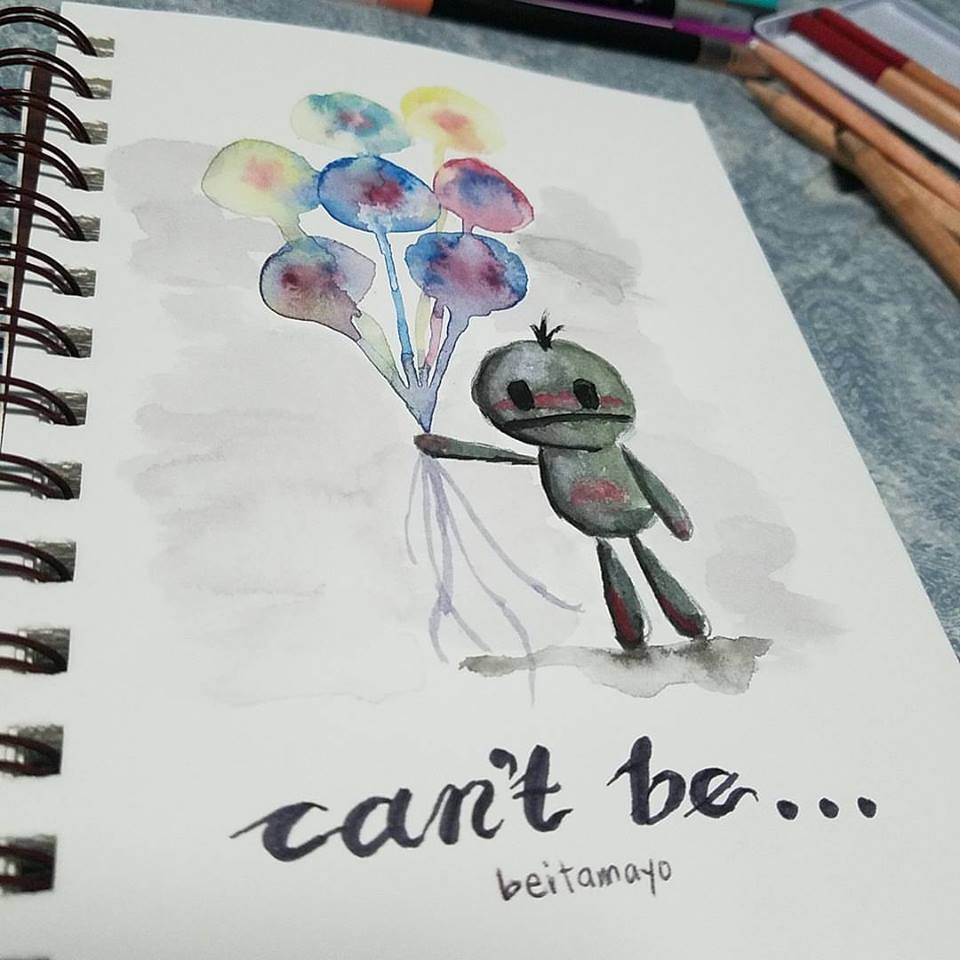 can't be...
beitamayo